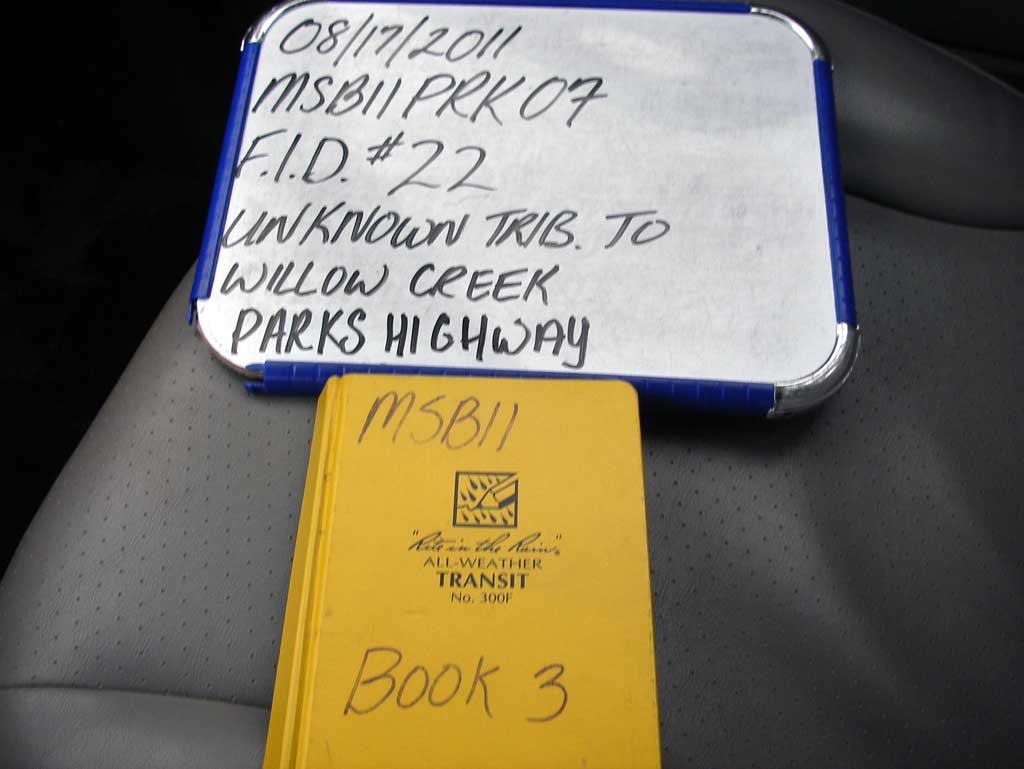 08/17/2011
MSB11PRK07
F.I.D. #22
UNKNOWN TRIB. TO
WILLOW CREEK
PARKS HIGHWAY
MSB11
"Rite in the Rain"®
ALL-WEATHER
TRANSIT
No. 300F
BOOK 3